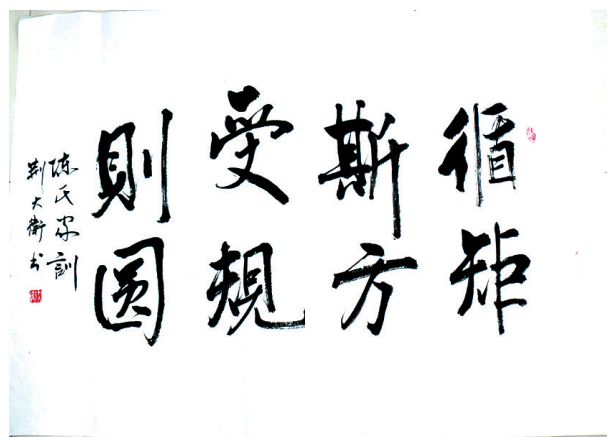 循矩
斯方
受規
則圆
陈氏家訓
荆大衛书